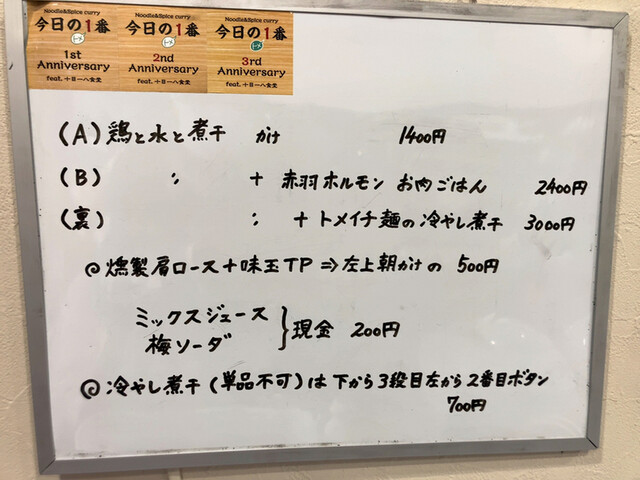 Noodle&Spice curry
今日の1番
1st
Anniversary
feat. 十日一八食堂
Noodle&Spice curry
今日の1番
2nd
Anniversary
feat. 十日一八食堂
Noodle&Spice curry
今日の1番
3rd
Anniversary
feat. 十日一八食堂
(A) 鶏と水と煮干 かけ 1400円
(B) 〃 + 赤羽ホルモン お肉ごはん 2400円
(裏) 〃 + トメイチ麺の冷やし煮干 3000円
◎燻製肩ロース+味玉TP⇒左上朝かけの 500円
ミックスジュース
梅ソーダ } 現金 200円
◎冷やし煮干(単品不可)は下から3段目左から2番目ボタン
700円